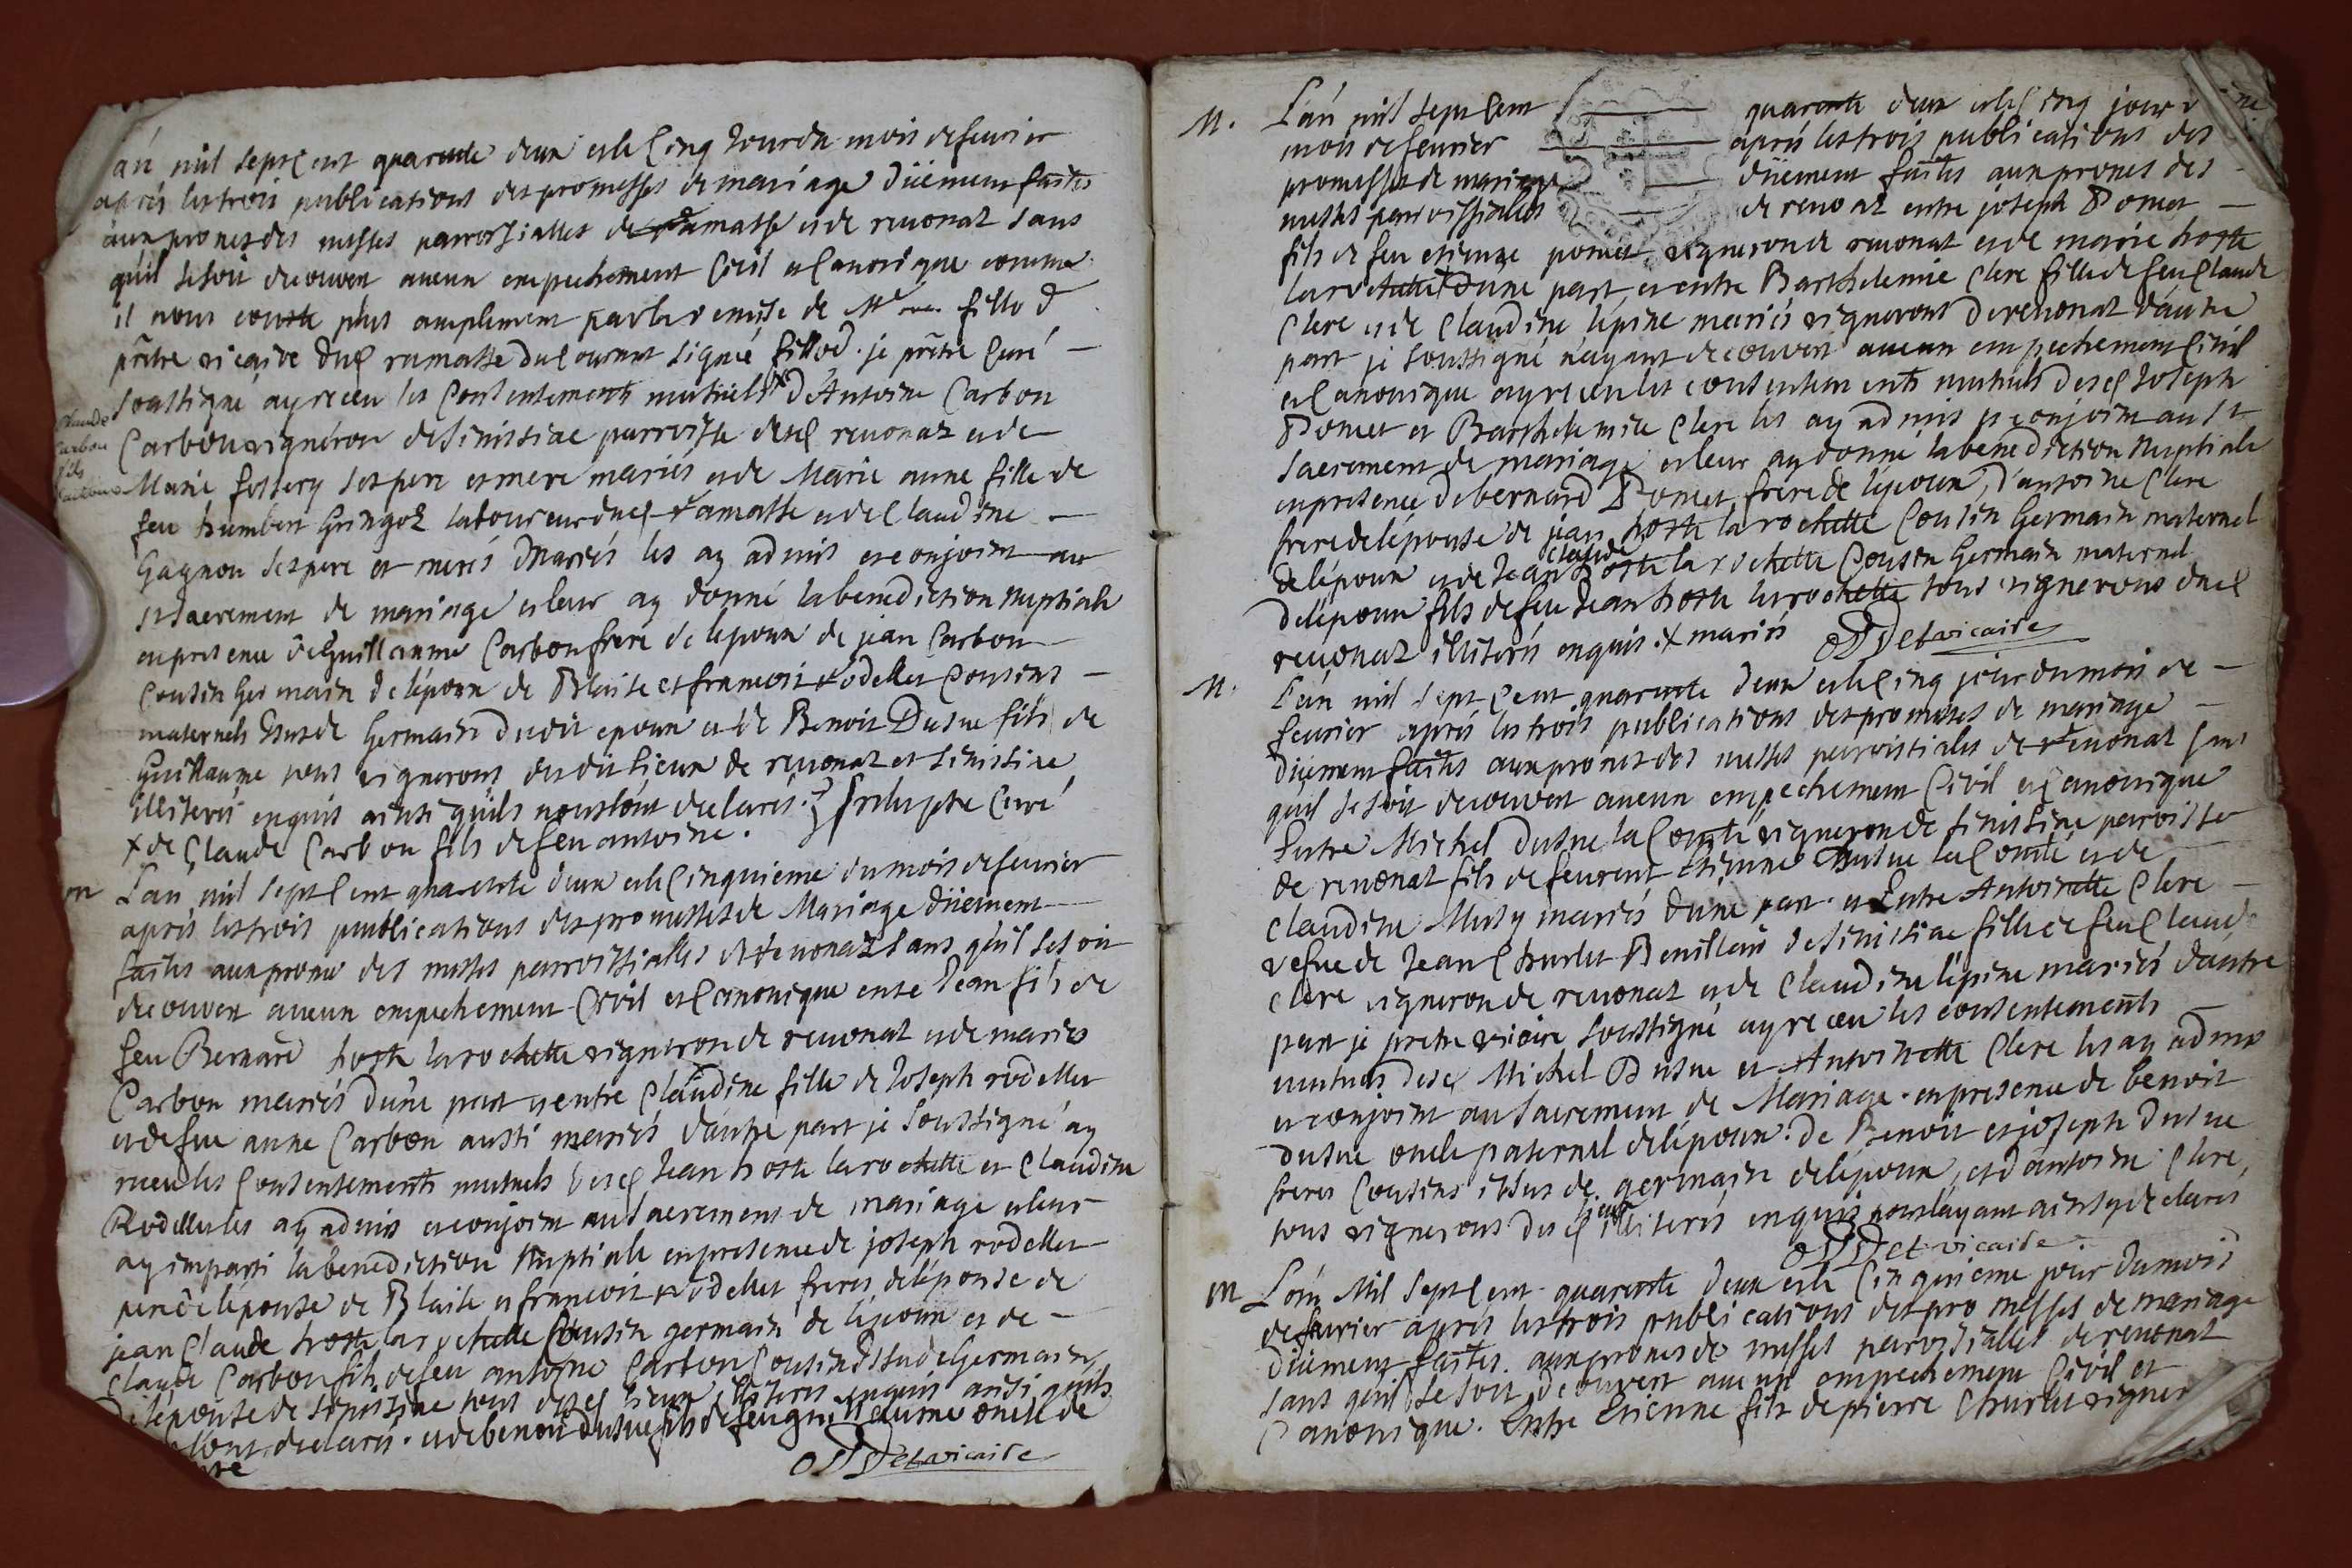 an mil sept cent quarante deux et le cinq jour du mois de feurier
aprés les trois publications des promesses de mariage düement faites
aux prones des messes parrossialles de ramasse et de reuonaz sans
quil se soit decouvert aucun empechement Civil et Canonique comme
il nous conste plus amplement par la remise de Mre fillod
prêtre vicaire dud ramasse du courant signé fillod. je prêtre Curé
soussigné ay receu les Consentements mutuels x d'Antoine Carbon
Carbon vigneron de Sinissiac parroisse desd reuonaz et de
Marie fossery ses pere et mere mariés et de Marie anne fille de
feu humbert Gringoz laboureur dud ramasse et de Claudine
Gagnon ses pere et meres Mariés les ay admis et conjoint au
st sacrement de mariage et leur ay donné la benediction nuptiale
en presence de Guillaume Carbon frere de lepoux de jean Carbon
Cousin Germain de lépoux de Blaise et francois rodellet Cousins
maternels issus de Germain dudit epoux et de Benoit Dusue fils de
Guillaume tous vignerons dudit lieux de reuonaz et sinissiac
illiterés enquis ainsi quils nous lont declarés. ptre Curé
x de Claude Carbon fils de feu antoine.
Claude
Carbon
fils
antoine
m L'an mil sept cent quarante deux et le Cinquieme du mois de feurier
aprés les trois publications des promesses de Mariage düement
faites aux prones des messes parroissialles de reuonaz sans quil se soit
decouvert aucun empechement Civil et Canonique entre Jean fils de
feu Bernard hoste larochette vigneron de reuonaz et de maries
Carbon mariés d'une part et entre Claudine fille de Joseph rodellet
et de fue anne Carbon aussi mariés d'autre part je soussigné ay
receu les Consentements mutuels desd Jean hoste larochette et Claudine
Rodellet les ay admis et conjoint au sacrement de mariage et leur
ay imparti la benediction Nuptiale en presence de joseph rodellet
pere de lépouse de Blaise et francois rodellet freres de lépouse de
jean Claude hoste larochette Cousin germain de lépoux et de
Claude Carbon fils de feu antoine Carbon Cousin issu de Germain
de lépouse de sinissiac tous desd lieux illiterés enquis ainsi quils
lont declarés. et de benoit dusue fils de feu guillaume oncle de
Det vicaire
M. L'an mil sept cent quarante deux et le Cinq jour
mois de feurier aprés les trois publications des
promesses de mariage düement faites aux prones des
messes parroissialles de reuonaz entre joseph Pomet
fils de feu etienne pomet vigneron de reuonat et de marie hoste
larochette x d'une part et entre Barthelemie Clere fille de feu Claude
Clere et de Claudine lépine mariés vignerons de reuonat d'autre
part je soussigné n'ayant decouvert aucun empechement Civil
et Canonique ay receu les consentements mutuels desd Joseph
Pomet et Barthelemie Clere les ay admis et conjoint au st
sacrement de mariage et leur ay donné la benediction Nuptiale
en presence de bernard Pomet frere de lépoux, d'antoine Clere
frere de lépouse de jean hoste larochette Cousin Germain maternel
de lépoux et de Jean Claude hoste larochette Cousin Germain maternel
de lépoux fils de feu Jean hoste larochette tous vignerons dud
reuonaz illiterés enquis. x mariés Det vicaire
M. L'an mil sept Cent quarante deux et le Cinq jour du mois de
feurier aprés les trois publications des promesses de mariage
düement faites aux prones des messes parroissiales de reuonat sans
quil se soit decouvert aucun empechement Civil et Canonique
Entre Michel dusue la Comte vigneron de sinissiac parroisse
de reuonat fils de feu etienne dusue la Comte et de
Claudine Musy mariés d'une part. et Entre Antoinette Clere
vefue de Jean Churlet de sinissiac fille de feu Claude
Clere vigneron de reuonat et de Claudine lépine mariés d'autre
part je pretre vicaire soussigné ay receu les consentements
mutuels desd Michel Dusue et Antoinette Clere les ay admis
et conjoint au sacrement de Mariage. en presence de benoit
dusue oncle paternel de lépoux. de Benoit et joseph dusue
freres Cousins issus de germain de lépoux, et d'antoine Clere,
tous vignerons desd lieux illiterés enquis nous layant ainsy declarés
Det vicaire
m L'an Mil sept Cent quarante deux et le Cinquieme jour du mois
de feurier aprés les trois publications des promesses de mariage
düement faites. aux prones de messes parroissialles de reuonat
sans quil se soit decouvert aucun empechement Civil et
Canonique. Entre Etienne fils de pierre Churlet vigner